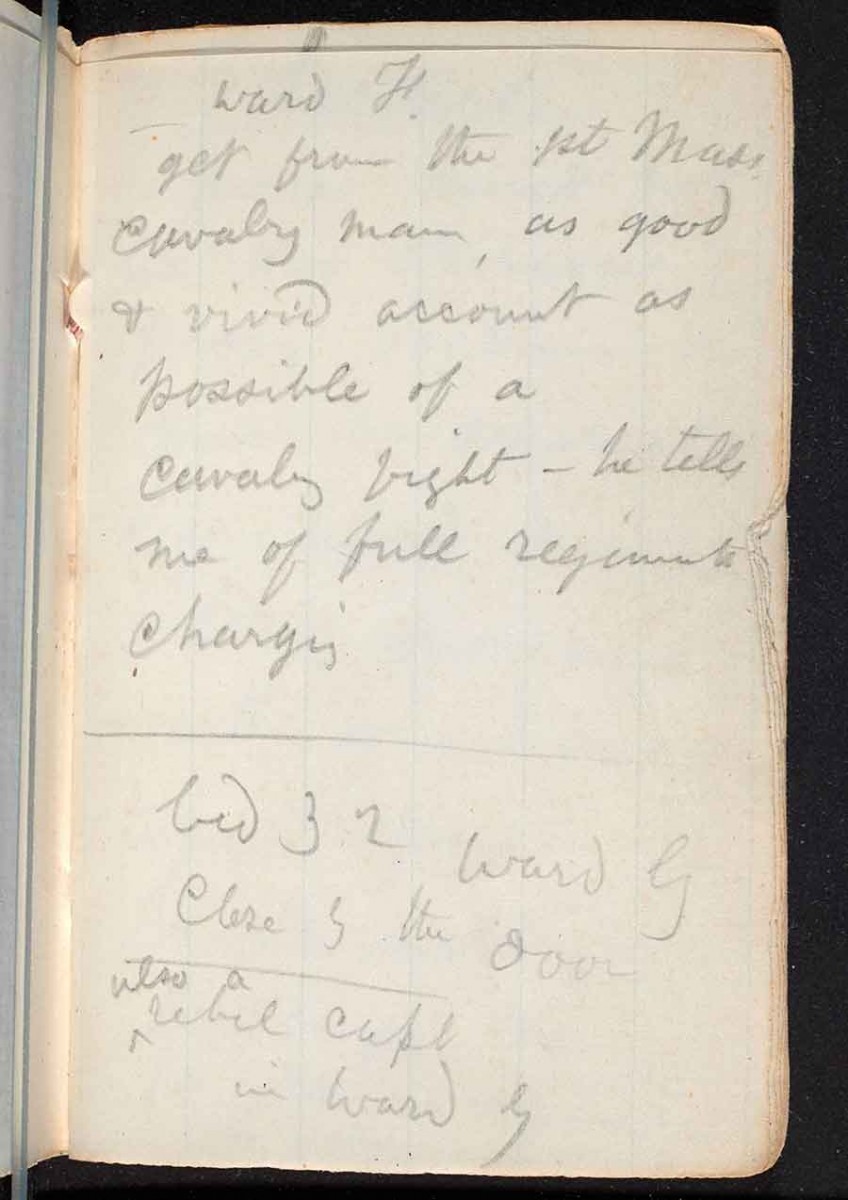 ward H.
get from the 1st Mass.
cavalry man, as good
& vivid account as
possible of a
cavalry fight – he tells
me of full regiments
charging
bed 32 ward G
Close by the door
also a
rebel capt
in ward G